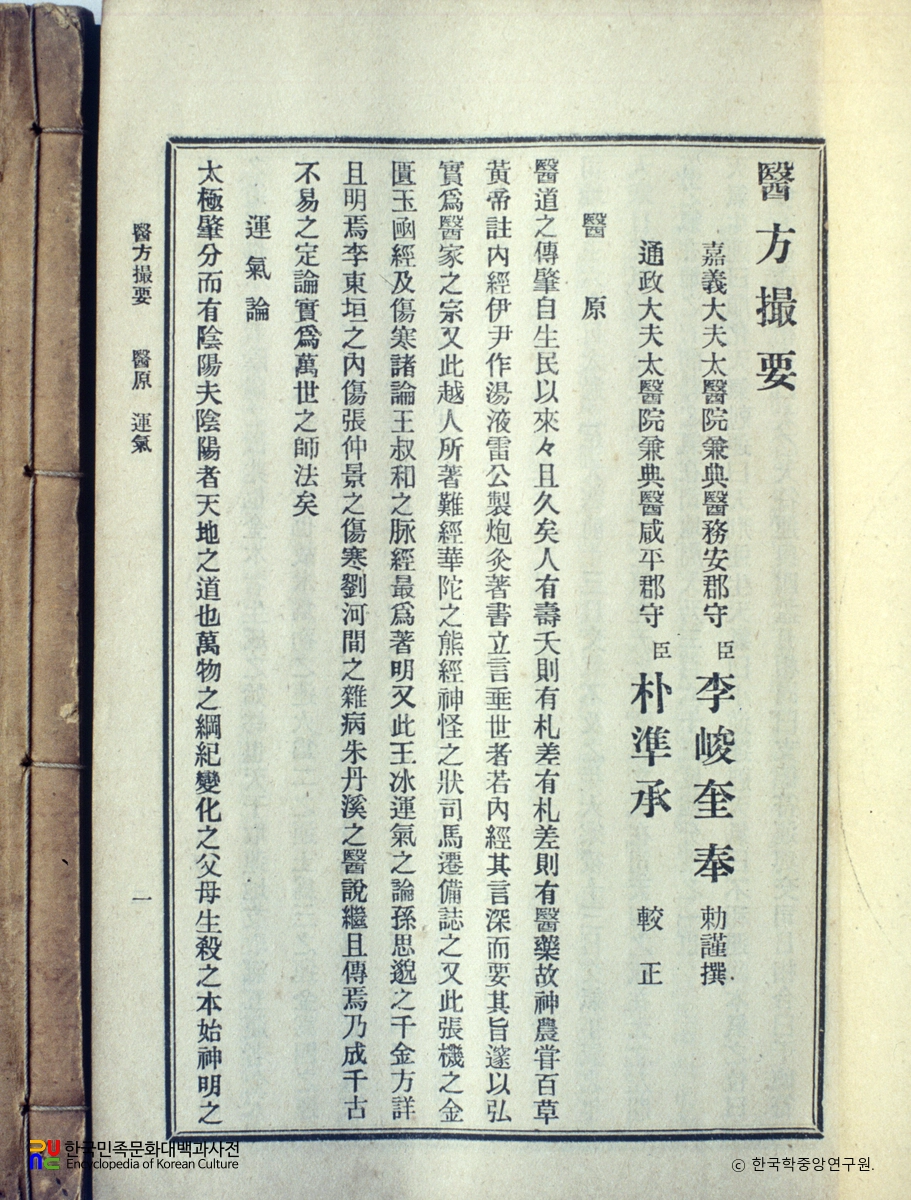 醫方撮要
嘉義大夫太醫院兼典醫務安郡守 臣 李峻奎奉 勅謹撰
通政大夫太醫院兼典醫咸平郡守 臣 朴準承 較正
醫原
醫道之傳肇自生民以來々且久矣人有壽夭則有札差有札差則有醫藥故神農甞百草
黃帝註內經伊尹作湯液雷公製炮灸著書立言垂世者若內經其言深而要其旨邃以弘
實爲醫家之宗又此越人所著難經華陀之熊經神怪之狀司馬遷備誌之又此張機之金
匱玉凾經及傷寒諸論王叔和之脉經最爲著明又此王冰運氣之論孫思邈之千金方詳
且明焉李東垣之內傷張仲景之傷寒劉河間之雜病朱丹溪之醫說繼且傳焉乃成千古
不易之定論實爲萬世之師法矣
運氣論
太極肇分而有陰陽夫陰陽者天地之道也萬物之綱紀變化之父母生殺之本始神明之
醫方撮要 醫原 運氣 一
한국민족문화대백과사전
Encyclopedia of Korean Culture
ⓒ 한국학중앙연구원.